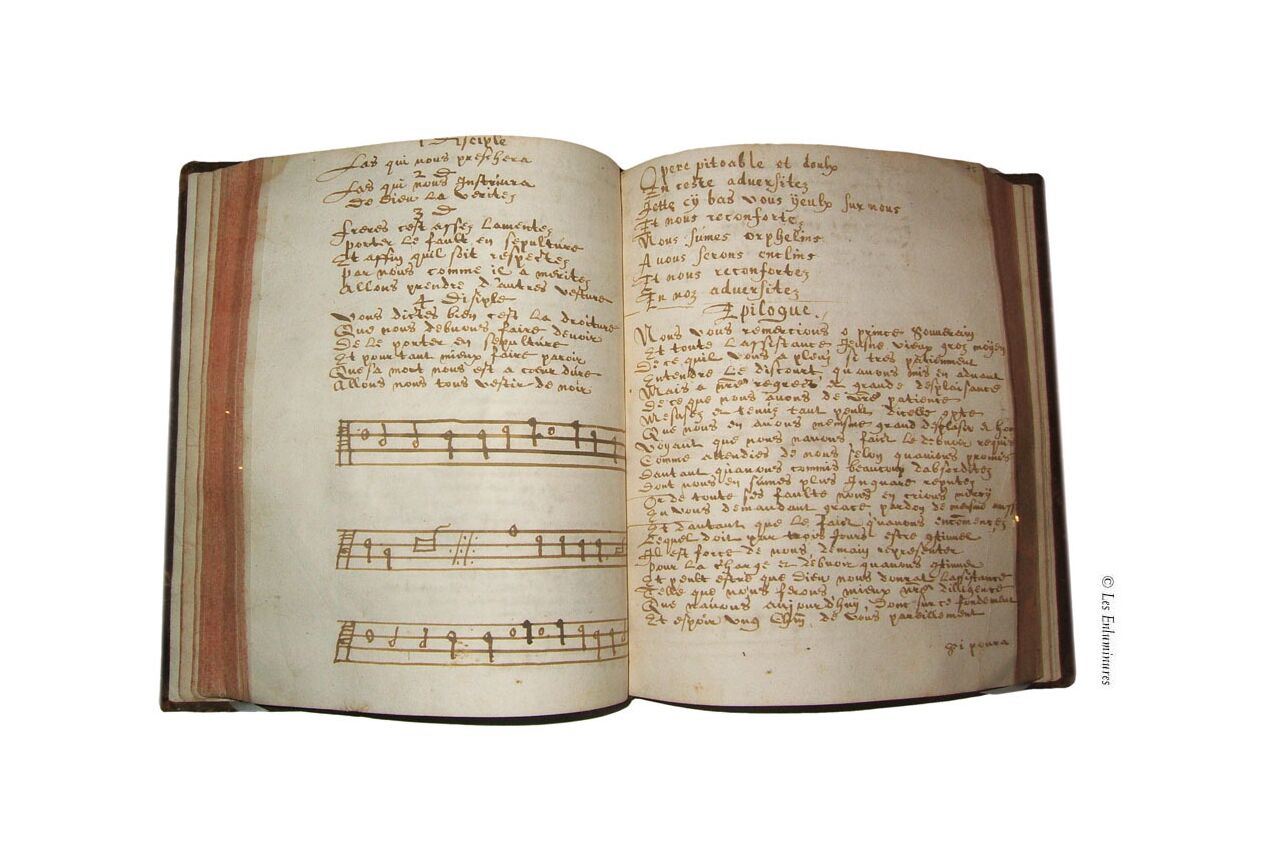 1 Disciple
Las qui nous preschera
2 D
Las qui nous Instruira
De Dieu la veritez
3 D
Freres cest assez lamentez
porter le fault en sepulture
Et affin quil soit respectez
par nous comme il a meritez
Allons prendre d'autres vesture
4 Disiple
Vous dictes bien cest la droiture
Que nous debuons faire debuoir
De le porter en sepulture
Et pourtant mieux faire paroir
Que sa mort nous est a cœur dure
Allons nous tous vestir de noir
O pere pitoable et doulx
En ceste adversitez
Jette cy bas vous yeulx sur nous
Et nous reconfortez
Nous sumes orphelins
A vous serons enclins
Et nous reconfortez
En noz adversitez
Epilogue.
Nous vous remercions o prince Souverain
Et toute Lassistance Jeusne vieux groz moyen
De ce quil vous a pleu si tres patiemment
Entendre Le discourt quavons mis en avant
Mais a nre regrect et grande desplaisance
De ce que nous avons de vre patience
Mesusez et tenus tant peult dicelle
Que nous en avons mesme grand desplesir
Voyant que nous navons fait Le debvoir requis
Comme attendies de nous selon quavions promis
Dautant quavons commis beaucoup dabsurditez
Dont nous en sumes plus Inquare reputez
Or de toute ses faulte nous en crions mercy
En vous demandant grace pardon de mesme
Et dautant que Le faict quavons encomencez
Lequel doit par trois Jours estre
Il est force de nous, demain representer
pour La charge et debvoir quavons
Et peult estre que Dieu nous donrat Lassistance
Telle que nous ferons mieux nre dilligence
Que navons aujourd'huy, Dont sur ce fondement
Et espoir ung de vous pareillement
qi poura
© Les Enluminures